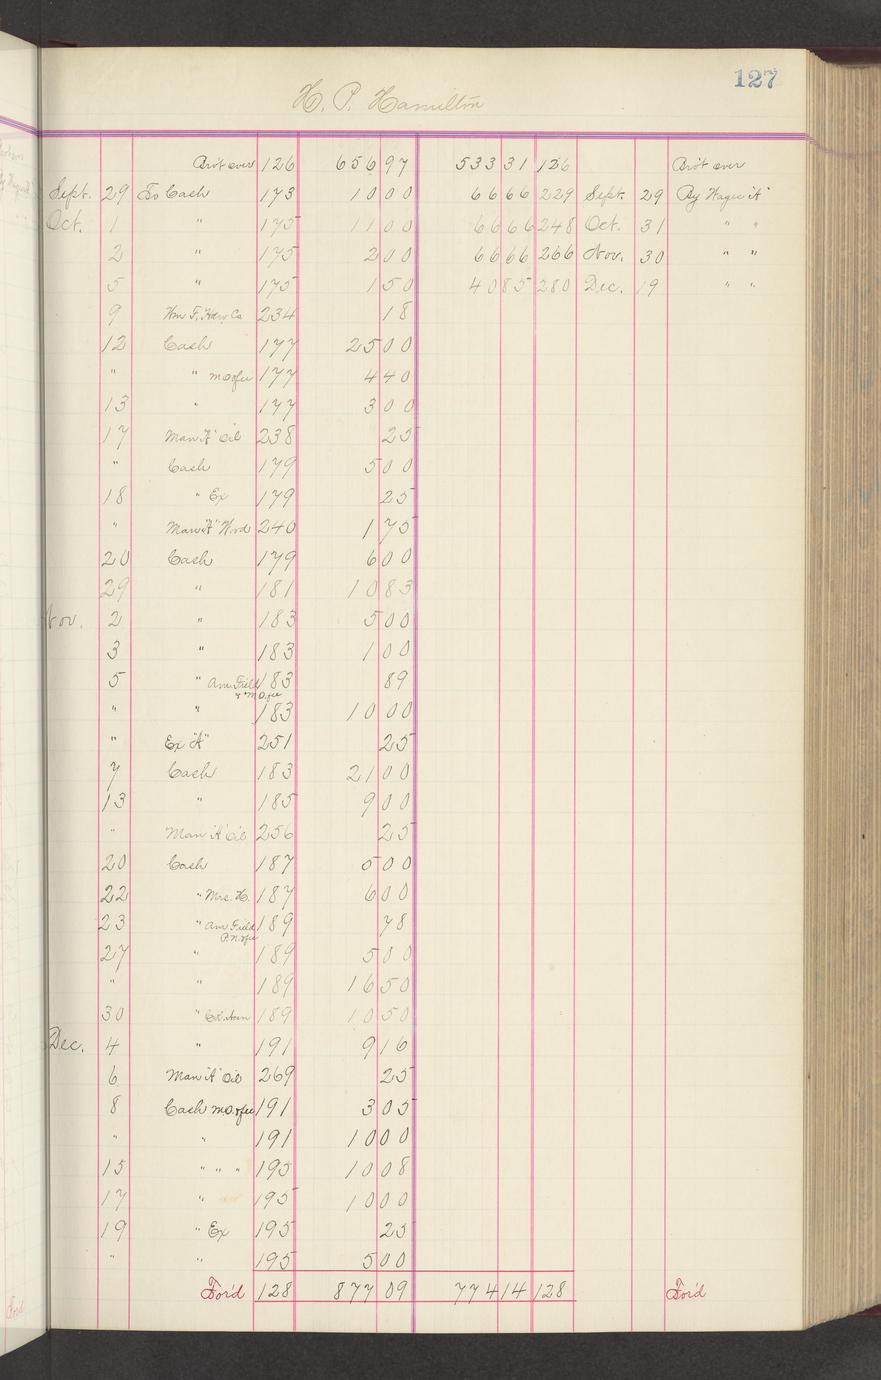 127
H. P. Hamilton
Bro't over 126 656 97 533 31 126 Bro't over
Sept. 29 To Cash 173 10 00 66 66 229 Sept. 29 By Wages "A"
Oct. 1 " 175 11 00 66 66 248 Oct. 31 " "
2 " 175 2 00 66 66 266 Nov. 30 " "
5 " 175 1 50 40 85 280 Dec. 19 " "
9 Wm F. Hdw Co 234 18
12 Cash 177 25 00
" " M O & fee 177 4 40
13 " 177 3 00
17 Man "A" Oil 238 25
" Cash 179 5 00
18 " Ex 179 25
" Man "A" Wood 240 1 75
20 Cash 179 6 00
29 " 181 10 83
Nov. 2 " 183 5 00
3 " 183 1 00
5 " Am. Field 183 89
& M O. fee
" " 183 10 00
" Ex "A" 251 25
7 Cash 183 21 00
13 " 185 9 00
" Man "A" Oil 256 25
20 Cash 187 5 00
22 " Mrs. H. 187 6 00
23 " Am Field 189 78
P. N. & fee
27 " 189 5 00
" " 189 16 50
30 " 189 10 50
Dec. 4 " 191 9 16
6 Man "A" Oil 269 25
8 Cash M O & fee 191 3 05
" " 191 10 00
15 " " " 195 10 08
17 " 195 10 00
19 " Ex 195 25
" " 195 5 00
For'd 128 877 09 774 14 128 For'd